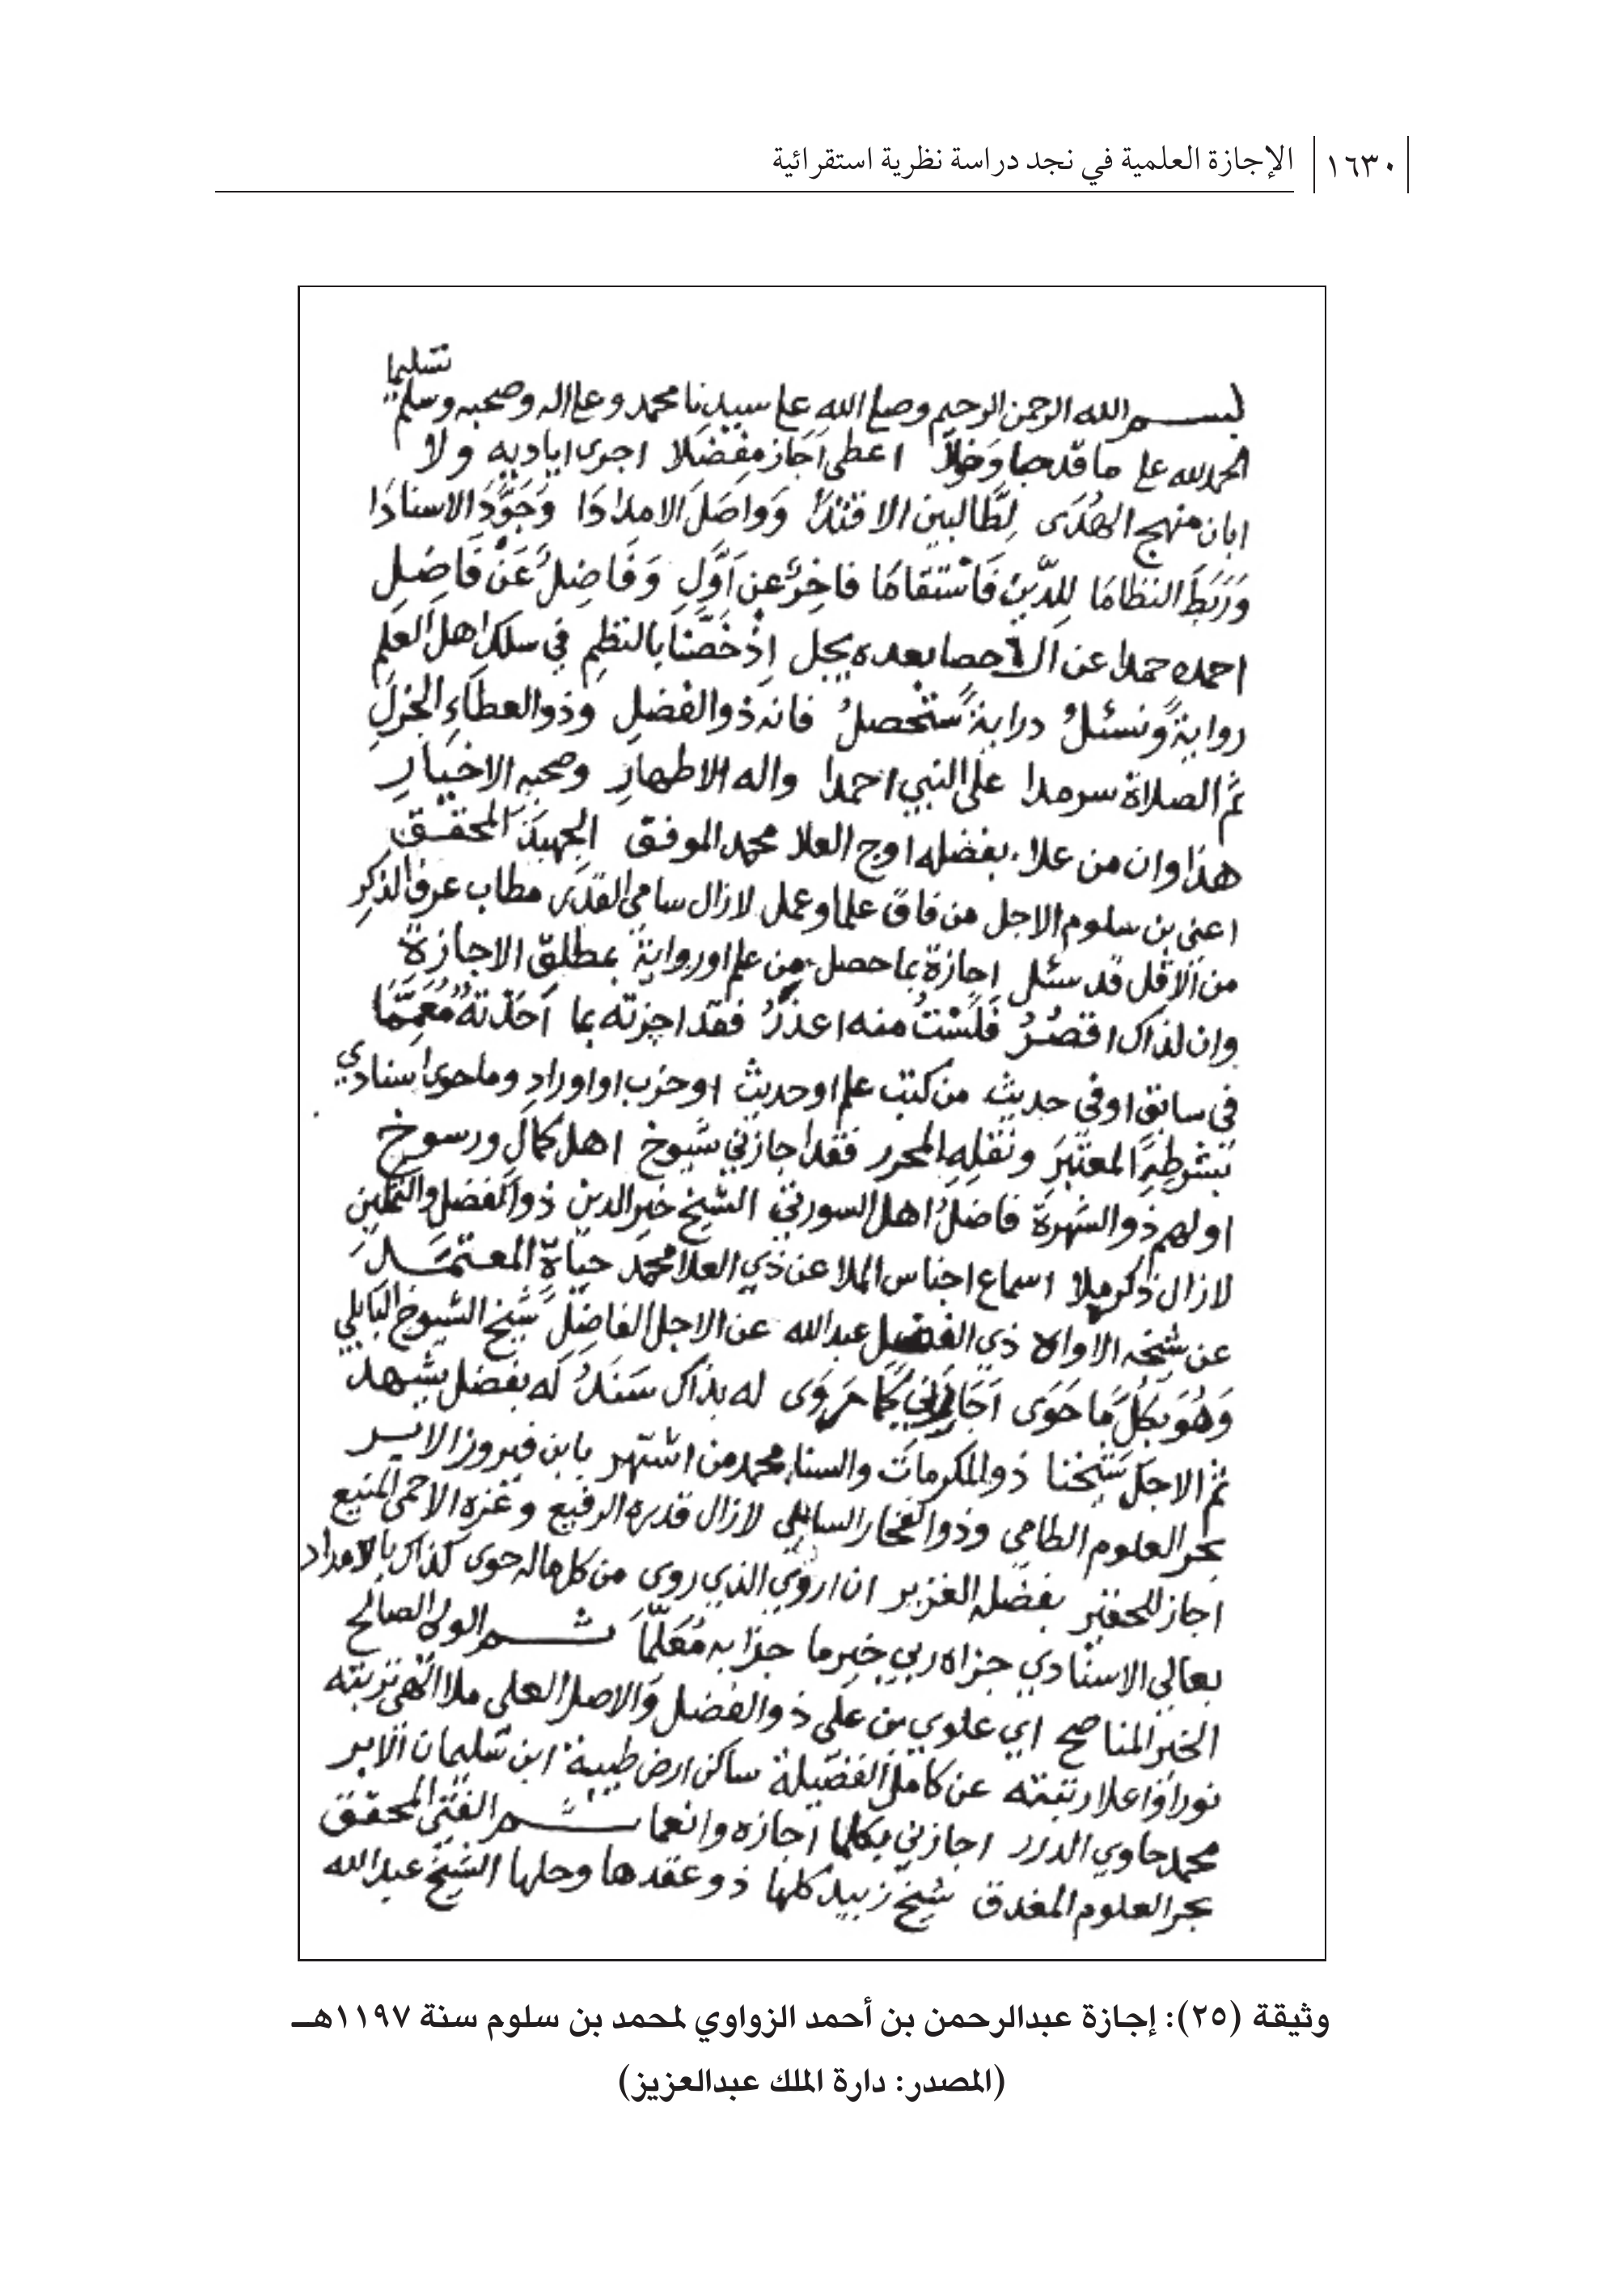 ١٦٣٠ الإجازة العلمية في نجد دراسة نظرية استقرائية
تسليما
بسم الله الرحمن الرحيم وصلى الله على سيدنا محمد وعلى اله وصحبه وسلم
الحمد لله على ما قد حبا وخولا اعطى اجاز مفضلا اجرى اياديه ولا
ابان منهج الهُدَى لِطَّالبين الاقتدَا وَوَاصَلَ الامدادَا وَجَوَّدَ الاسنادَا
وَرَبَطَ النظامَا لِلدِّيْنِ فَاسْتَقَامَا فاخِرٌ عن اَوَّلِ وَفَاضِلٌ عَنْ فَاضِلِ
احمده حمدا عن الاحصا بعده يجل اِذْ خَصَّنَا بالنظمِ في سلك اهل العلمِ
روايةً ونسئلُ درايةً ستحصلُ فانه ذو الفضلِ وذو العطاءِ الجزلِ
ثم الصلاة سرمدا على النبي احمدا واله الاطهارِ وصحبه الاخيارِ
هذا وان من علا بفضله اوج العلا محمد الموفق الجهبذ المحقق
اعني بن سلوم الاجل من فاق علما وعمل لازال سامي القدرِ مطاب عرف الذكرِ
من الاقل قد سئل اجازة بما حصل من علم او روايةٍ بمطلق الاجازة
وان لذاك اقصُرُ فَلَسْتُ منه اعذرُ فقد اجزته بما اَخَذتهُ مُعَمِّمَا
في سابق او في حديث من كتب علم او حديث او حزب او اورادِ وما حوى اسنادي
بشرطِهِ المعتبر ونقلِهِ المحرر فقد اجازني شيوخ اهل كمال ورسوخ
اولهم ذو الشهرة فاضلُ اهل السورتي الشيخ خير الدين ذو الفضل والتمكين
لازال ذكره ملا اسماع اجناس الملا عن ذي العلا محمد حياة المعتمد
عن شيخه الاواه ذي الفضل عبدالله عن الاجل الفاضِلِ شيخ الشيوخ البابلي
وَهُوَ بكلِّ ما حَوَى اَجَازَنِي كما رَوَى له بذاك سَنَدُ لَه بفضل يشهد
ثم الاجل شيخنا ذو المكرمات والسنا محمد من اشتهر بابن فيروز الابر
بحر العلوم الطامي وذو الفخار السامي لازال قدره الرفيع وعزه الاحمى المنيع
اجاز للحقير بفضله الغزير ان اروي الذي روى من كل ما له حوى كذاك بالامداد
بعالي الاسنادي جزاه ربي خير ما جزا به مُعَلِّمَا ثم الولي الصالح
الخير المناصح اي علوي بن علي ذو الفضل والاصل العلي ملا الهي تربته
نورا واعلا رتبته عن كامل الفضيلة ساكن ارض طيبة ابن سليمان الابر
محمد حاوي الدرر اجازني بكلما اجازه وانعما ثم الفتى المحقق
بحر العلوم المغدق شيخ زبيد كلها ذو عقدها وحلها الشيخ عبدالله
وثيقة (٢٥): إجازة عبدالرحمن بن أحمد الزواوي لمحمد بن سلوم سنة ١١٩٧هـ
(المصدر: دارة الملك عبدالعزيز)